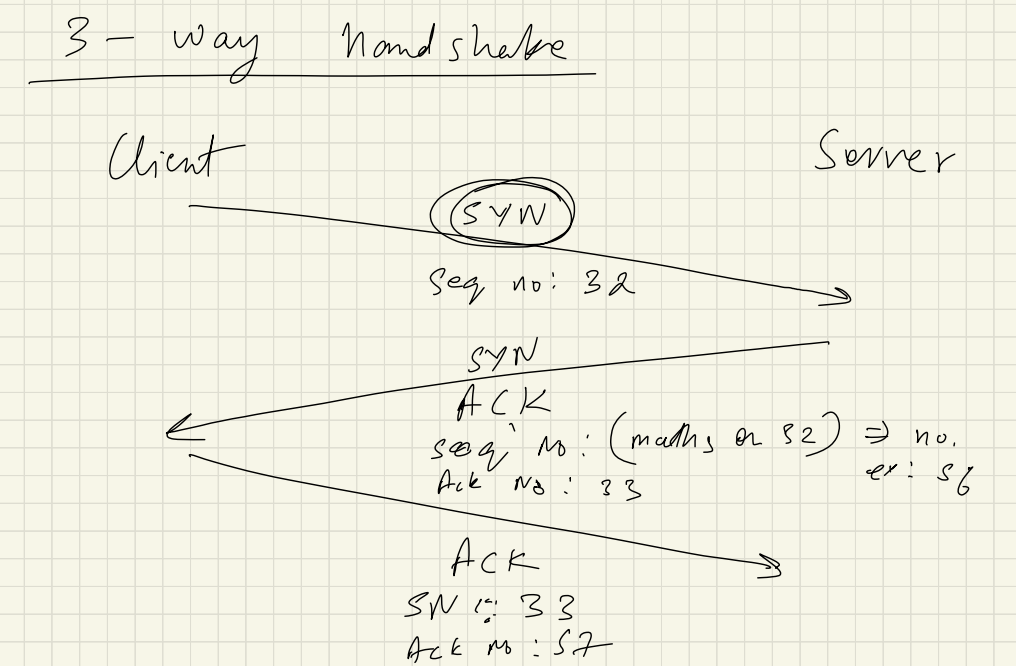 3 - way handshake
Client
Server
SYN
Seq no: 32
SYN
ACK
seq no: (maths on 32) => no.
ex: 56
Ack No: 33
ACK
SN : 33
Ack no: 57